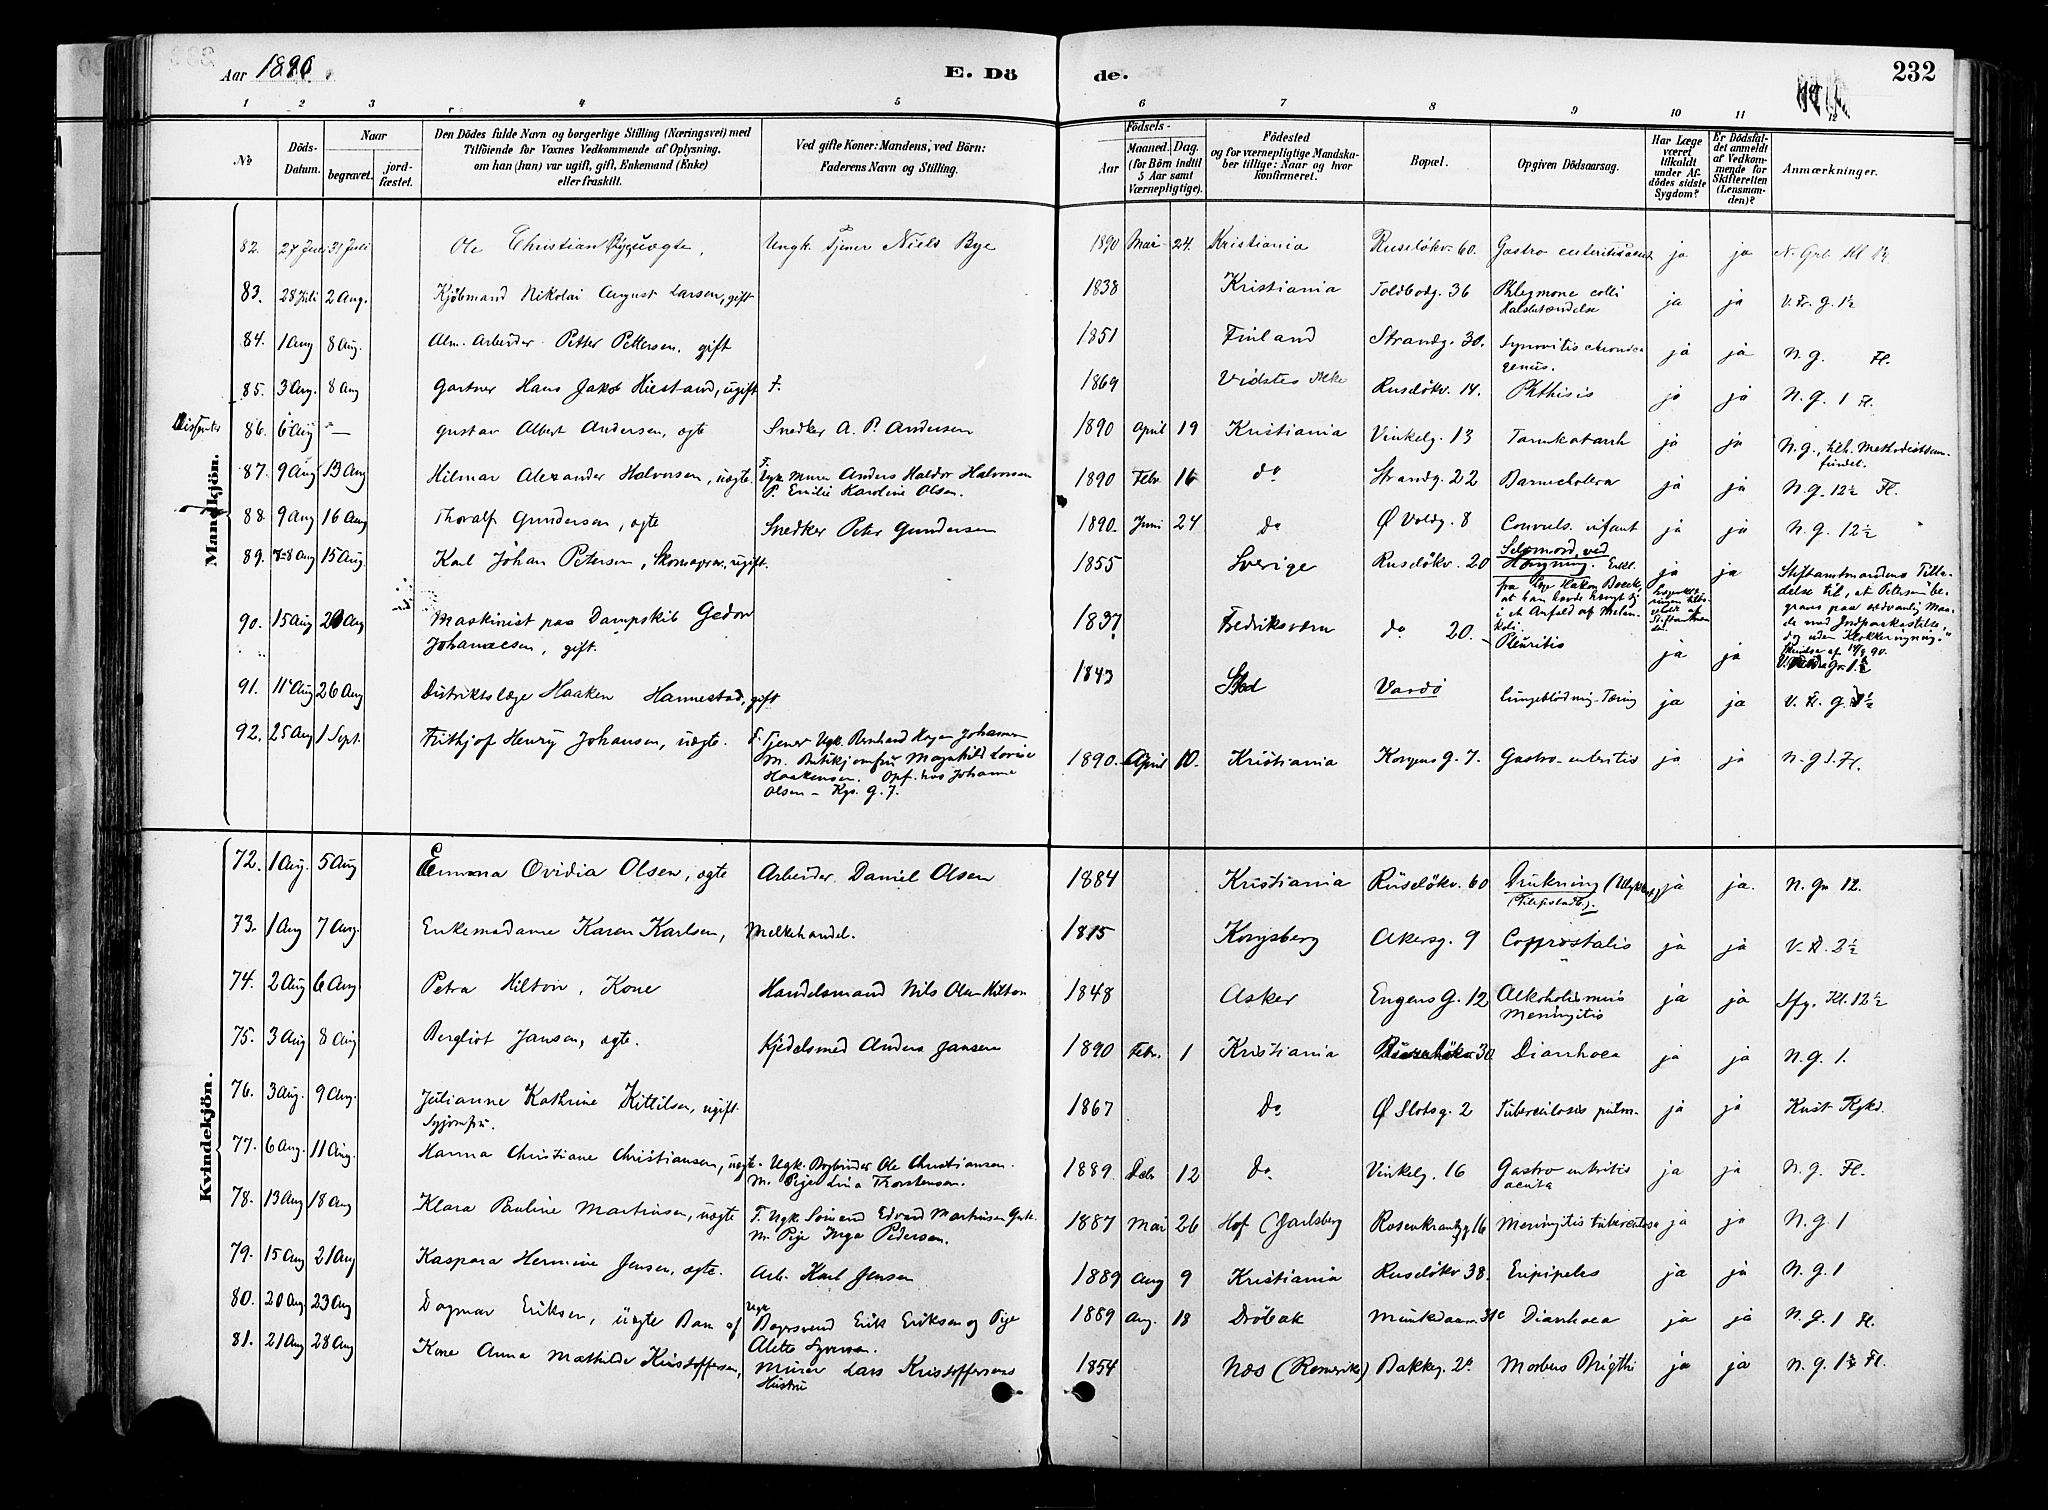 Aar 1890.
E. Dö
de.
232
1 2 3 4 5 6 7 8 9 10 11 12
No
Döds-Datum.
Naar
begravet.
jord-fæstet.
Den Dödes fulde Navn og borgerlige Stilling (Næringsvei) med
Tilföiende for Voxnes Vedkommende af Oplysning.
om han (hun) var ugift, gift, Enkemand (Enke)
eller fraskilt.
Ved gifte Koner: Mandens, ved Börn:
Faderens Navn og Stilling.
Födsels-
Aar
Maaned. Dag.
(for Börn indtil 5 Aar samt Værnepligtige).
Födested
og for værnepligtige Mandska-
ber tillige: Naar og hvor
konfirmeret.
Bopæl.
Opgiven Dödsaarsag.
Har Læge været tilkaldt under Af-dödes sidste Sygdom?
Er Dödsfal-det anmeldt af Vedkom-mende for Skifteretten (Lensman-den)?
Anmærkninger.
Mandkjön.
82. 27 Juli 31 Juli Ole Christian Bye, uægte, Ungk. Tjener Niels Bye 1890 Mai 24. Kristiania Ruselökv. 60. Gastro enteritis ja ja
83. 28 Juli 2 Aug. Kjöbmand Nikolai August Larsen, gift 1838 Kristiania Toldbodg. 36 Phlegmone colli ja ja V. Fr. g. 1½
Halsbetændelse
84. 1 Aug 8 Aug. Alm. Arbeider Petter Pettersen, gift 1851 Finland Strandg. 30. Synovitis chronica ja ja N. g. Fl.
genus.
85. 3 Aug. 8 Aug Gartner Hans Jakob Hiestand, ugift F. 1869 Ruselökv. 14. Phthisis ja ja N. g. 1 Fl.
Dissenter 86. 6 Aug — Gustav Albert Andersen, ægte Snedker A. P. Andersen 1890 April 19 Kristiania Vinkelg. 13 Tarmkatarrh ja ja N. g., tilh. Methodistsam-
fundet.
87. 9 Aug 13 Aug Hilmar Alexander Halvorsen, uægte. F. Ugk. Murer Anders Haldor Halvorsen 1890 Febr. 16 do Strandg. 22 Barnecholera ja ja N. g. 12½ Fl.
P. Emilie Karoline Olsen.
88. 9 Aug 16 Aug Thoralf Gundersen, ægte Snedker Peter Gundersen 1890. Juni 24 do Ø Voldg. 8 Convuls. infant ja ja N. g. 12½ "
89. 7-8 Aug 15 Aug. Karl Johan Petersen, Skomager, ugift. 1855 Sverige Ruselökv. 20 Selvmord ved
Hængning. Erkl.
fra Læge Håkon Boeck,
at han havde hængt sig
i et Anfald af Melan-
koli. ja ja Stiftamtmandens Tilla-
delse til, at Petersen be-
graves paa sædvanlig Maa-
de med Jordpaakastelse,
dog uden Klokkeringning,
90. 15 Aug 20 Aug Maskinist paa Dampskib Gedor 1837 Fredriksværn do 20. Pleuritis ja ja
Johannesen, gift.
91. 11 Aug 26 Aug Distriktslæge Haaken Hannestad, gift 1843 Vardö Lungeblödning-Tæring ja ja V. Fl. g. 1½
92. 25 Aug 1 Sept. Frithjof Henry Johansen, uægte. F. Tjener Ugk. Bernhard Hagen Johansen 1890. April 10. Kristiania Kongens G. 7. Gastro-enteritis ja ja N. g. 1. Fl.
M. Butikjomfru Magnhild Lovise
Haakensen. Opf. hos Johanne
Olsen - Kgs. G. 7.
Kvindekjön.
72. 1 Aug. 5 Aug Emma Ovidia Olsen, ægte Arbeider Daniel Olsen 1884 Kristiania Ruselökv. 60 Drukning ja ja. N. Gr. 12.
(Filipstadb.).
73. 1 Aug 7 Aug. Enkemadame Karen Karlsen, Melkehandel. 1815 Kongsberg Akersg. 9 Coprostalis ja ja V. Fl. 2½
74. 2 Aug 6 Aug Petra Hilton, Kone Handelsmand Nils Olsen Hilton 1848 Asker Engens G. 12 Alkoholismus ja ja Sfg. Kl. 12½
Meningitis
75. 3 Aug 8 Aug Bergliot Jansen, ægte. Kjedelsmed Anders Jansen 1890 Febr. 1 Kristiania Ruselökv 30 Diarrhoea ja ja N. g. 1.
76. 3 Aug. 9 Aug. Julianne Kathrine Kittilsen, ugift 1867 do Ø Slotsg. 2 Tuberculosis pulm. ja ja Krist. Kgkd.
Syjomfru.
77. 6 Aug. 11 Aug. Hanna Christiane Christiansen, uægte. Ugk. Bogbinder Ole Christiansen. 1889 Debr 12 do Vinkelg. 16 Gastro entritis ja ja N. g. Fl.
M. Pige Lina Thorstensen. acuta
78. 13 Aug 18 Aug Klara Pauline Martinsen, uægte F. Ugk. Sömand Edvard Martinsen 1887 Mai 26 Hof (Jarlsberg Rosenkrantzg 16 Meningitis tuberculosa ja ja N. g 1
M. Pige Inga Pedersen.
79. 15 Aug 21 Aug Kaspara Hermine Jensen, ægte. Arb. Karl Jensen 1889 Aug 9 Kristiania Ruselökv. 38. Erisipelas ja ja N. g. 1
80. 20 Aug 23 Aug Dagmar Eriksen, uægte Barn af Ugk. Bagersvend Erik Eriksen og Pige 1889 Aug. 18 Dröbak Munkedam. 31c Diarrhoea ja ja N. g. 1 Fl.
81. 21 Aug 28 Aug Kone Anna Mathilde Kristoffersen, Murer Lars Kristoffersens 1854 Næs (Romerike) Bakkeg. 2a Morbus Brigthi ja ja N. g. 1½ Fl.
Hustru